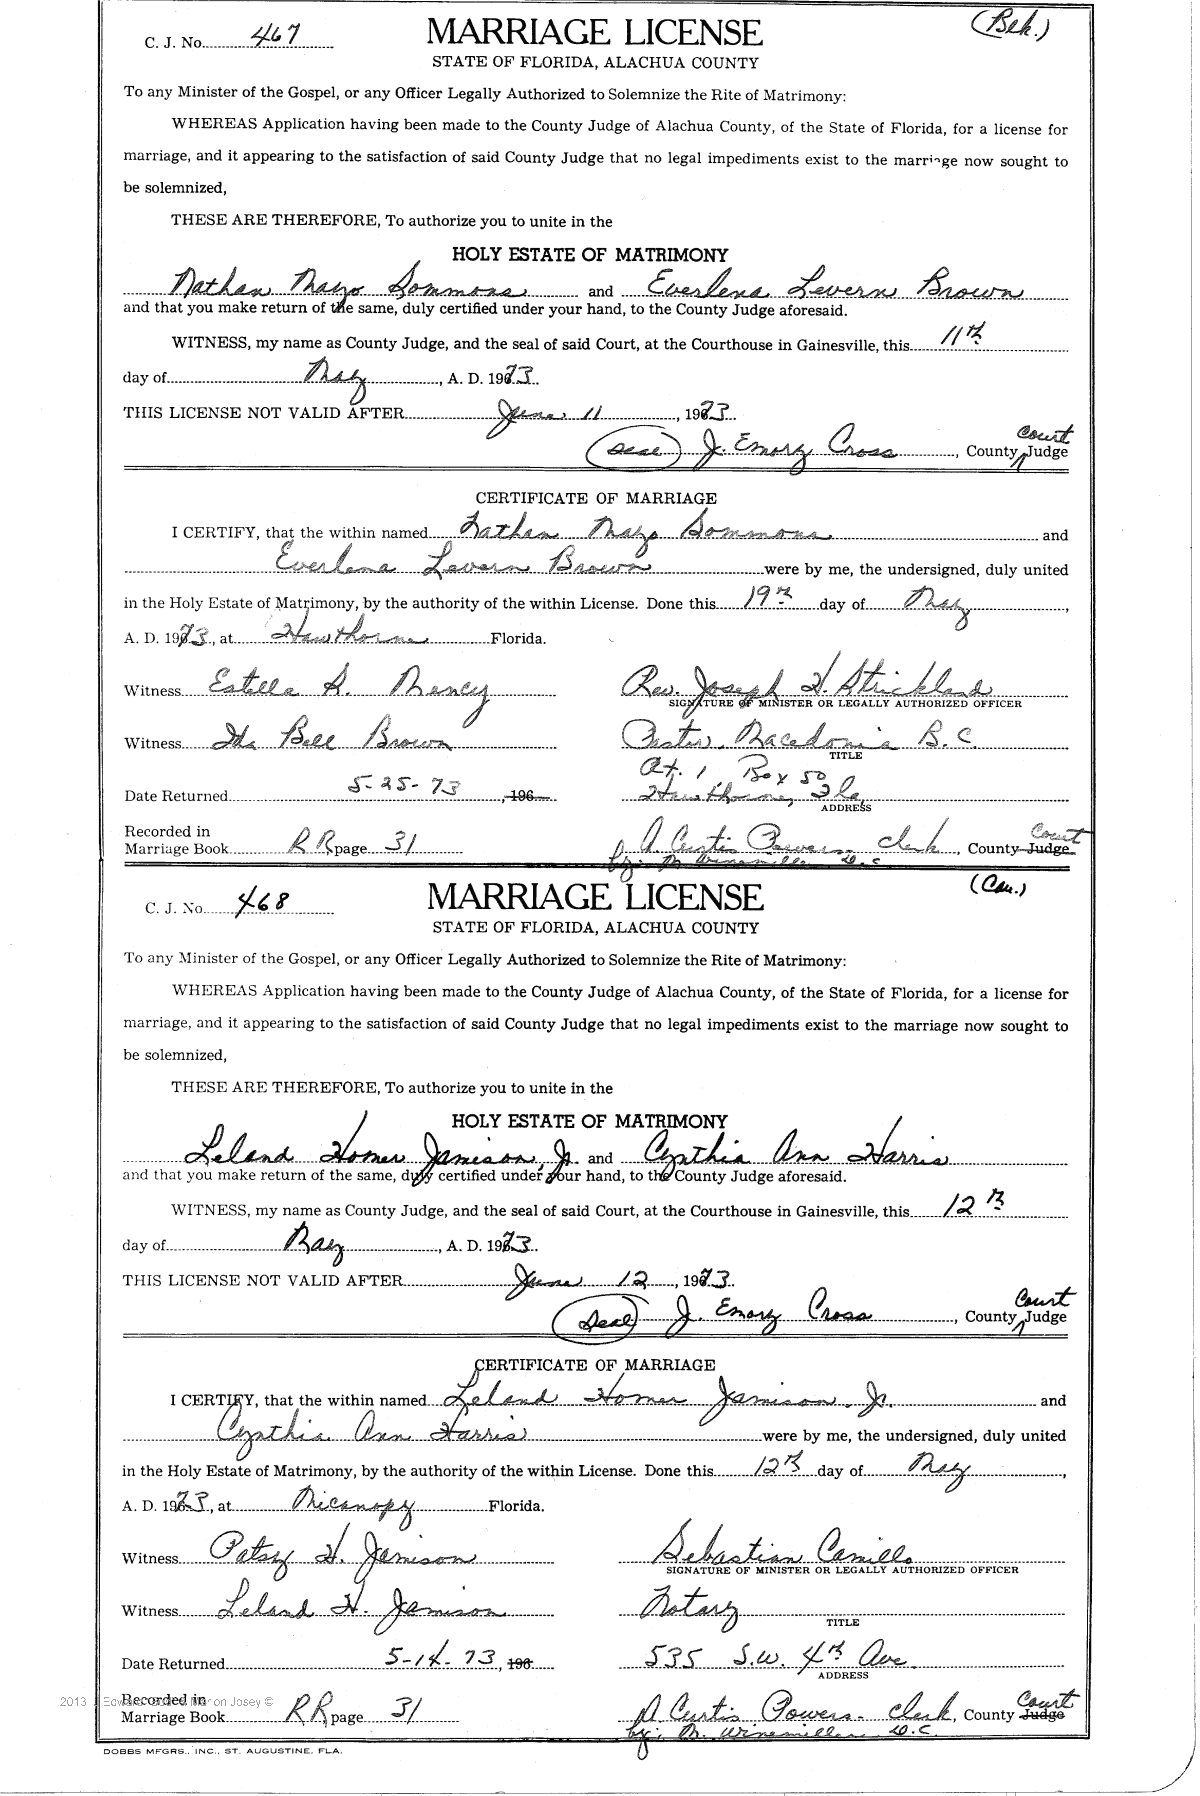 C. J. No. 467 MARRIAGE LICENSE (Blk.)
STATE OF FLORIDA, ALACHUA COUNTY
To any Minister of the Gospel, or any Officer Legally Authorized to Solemnize the Rite of Matrimony:
WHEREAS Application having been made to the County Judge of Alachua County, of the State of Florida, for a license for
marriage, and it appearing to the satisfaction of said County Judge that no legal impediments exist to the marriage now sought to
be solemnized,
THESE ARE THEREFORE, To authorize you to unite in the
HOLY ESTATE OF MATRIMONY
Nathan Mayo Sommons and Everlena Levern Brown
and that you make return of the same, duly certified under your hand, to the County Judge aforesaid.
WITNESS, my name as County Judge, and the seal of said Court, at the Courthouse in Gainesville, this 11th
day of May, A. D. 1973.
THIS LICENSE NOT VALID AFTER June 11, 1973.
(Seal) J. Emory Cross, County Court Judge
CERTIFICATE OF MARRIAGE
I CERTIFY, that the within named Nathan Mayo Sommons and
Everlena Levern Brown were by me, the undersigned, duly united
in the Holy Estate of Matrimony, by the authority of the within License. Done this 19th day of May,
A. D. 1973, at Hawthorne Florida.
Witness Estella S. Rency Rev. Joseph H. Strickland
SIGNATURE OF MINISTER OR LEGALLY AUTHORIZED OFFICER
Witness Ida Bell Brown Pastor, Macedonia B.C.
TITLE
Rt. 1, Box 50
Date Returned 5-25-73, 196 Hawthorne, Fla.
ADDRESS
Recorded in
Marriage Book RR page 31 A Curtis Powers clerk, County Court Judge
by: M. Winemiller D.C
C. J. No. 468 MARRIAGE LICENSE (Cau.)
STATE OF FLORIDA, ALACHUA COUNTY
To any Minister of the Gospel, or any Officer Legally Authorized to Solemnize the Rite of Matrimony:
WHEREAS Application having been made to the County Judge of Alachua County, of the State of Florida, for a license for
marriage, and it appearing to the satisfaction of said County Judge that no legal impediments exist to the marriage now sought to
be solemnized,
THESE ARE THEREFORE, To authorize you to unite in the
HOLY ESTATE OF MATRIMONY
Leland Homer Jamison, Jr. and Cynthia Ann Harris
and that you make return of the same, duly certified under your hand, to the County Judge aforesaid.
WITNESS, my name as County Judge, and the seal of said Court, at the Courthouse in Gainesville, this 12th
day of May, A. D. 1973.
THIS LICENSE NOT VALID AFTER June 12, 1973.
(Seal) J. Emory Cross, County Court Judge
CERTIFICATE OF MARRIAGE
I CERTIFY, that the within named Leland Homer Jamison, Jr. and
Cynthia Ann Harris were by me, the undersigned, duly united
in the Holy Estate of Matrimony, by the authority of the within License. Done this 12th day of May,
A. D. 1973, at Micanopy Florida.
Witness Patsy H. Jamison Sebastian Camillo
SIGNATURE OF MINISTER OR LEGALLY AUTHORIZED OFFICER
Witness Leland H. Jamison Notary
TITLE
Date Returned 5-14-73, 196 535 S.W. 4th Ave.
ADDRESS
Recorded in
Marriage Book RR page 31 A Curtis Powers clerk, County Court Judge
by: M. Winemiller D.C
DOBBS MFGRS., INC., ST. AUGUSTINE, FLA.
2013 Josey ©